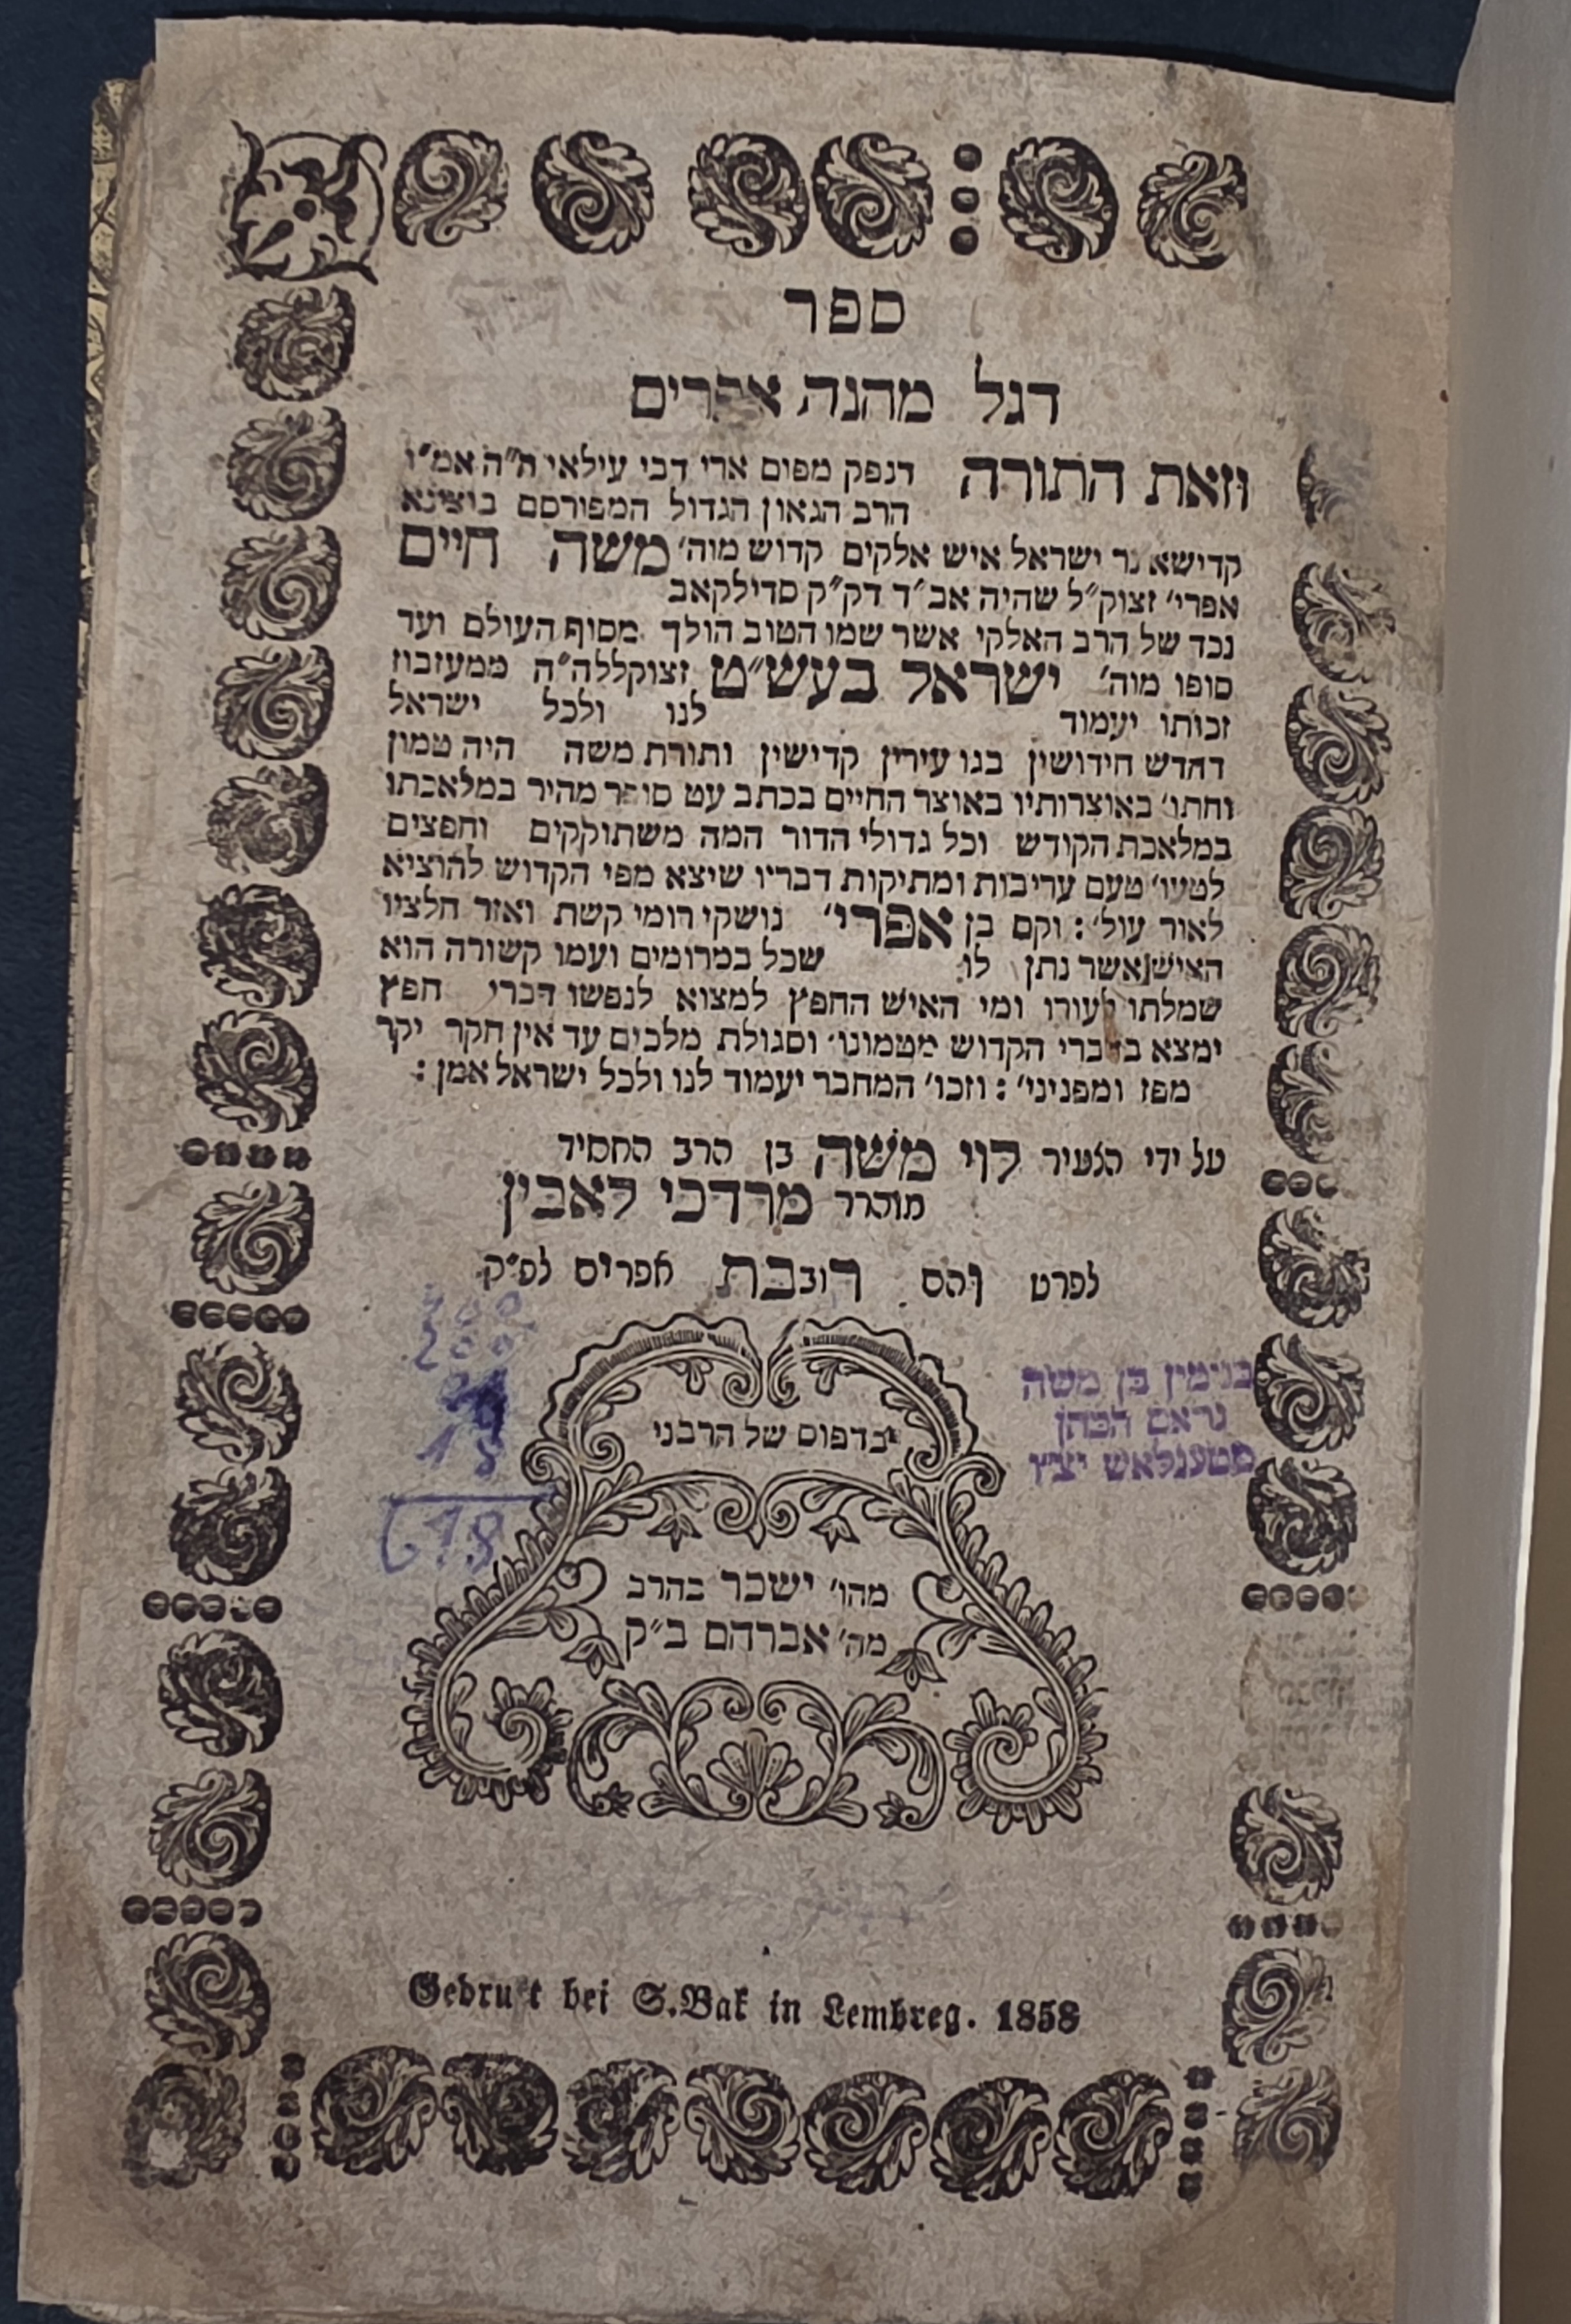 ספר
דגל מהנה אפרים
וזאת התורה דנפק מפום ארי דבי עילאי ה״ה אמ״ו
הרב הגאון הגדול המפורסם בוצינא
קדישא נר ישראל איש אלקים קדוש מוה׳ משה חיים
אפרי׳ זצוק״ל שהיה אב״ד דק״ק סדילקאב
נכד של הרב האלקי אשר שמו הטוב הולך מסוף העולם ועד
סופו מוה׳ ישראל בעש״ט זצוקללה״ה ממעזבוז
זכותו יעמוד לנו ולכל ישראל
דחדש חידושין בגו עירין קדישין ותורת משה היה טמון
וחתו׳ באוצרותיו באוצר החיים בכתב עט סופר מהיר במלאכתו
במלאכת הקודש וכל גדולי הדור המה משתוקקים וחפצים
לטעו׳ טעם עריבות ומתיקות דבריו שיצא מפי הקדוש להוציא
לאור עול׳: וקם בן אפרי׳ נושקי רומי קשת ואזר חלציו
האיש אשר נתן לו שכל במרומים ועמו קשורה הוא
שמלתו לעורו ומי האיש החפץ למצוא לנפשו דברי חפץ
ימצא בדברי הקדוש מטמונו׳ וסגולת מלכים עד אין חקר יקר
מפז ומפניני׳: וזכו׳ המחבר יעמוד לנו ולכל ישראל אמן:
על ידי הצעיר לוי משה בן הרב החסיד
מוהרר מרדכי לאבין
לפרט והם רובבת אפרים לפ״ק
200
18
618
בנימין בן משה
גראס הכהן
מטענלאש יצ״ו
בדפוס של הרבני
מהו׳ ישכר בהרב
מה׳ אברהם ב״ק
Gedrukt bei S. Bak in Lembreg. 1858